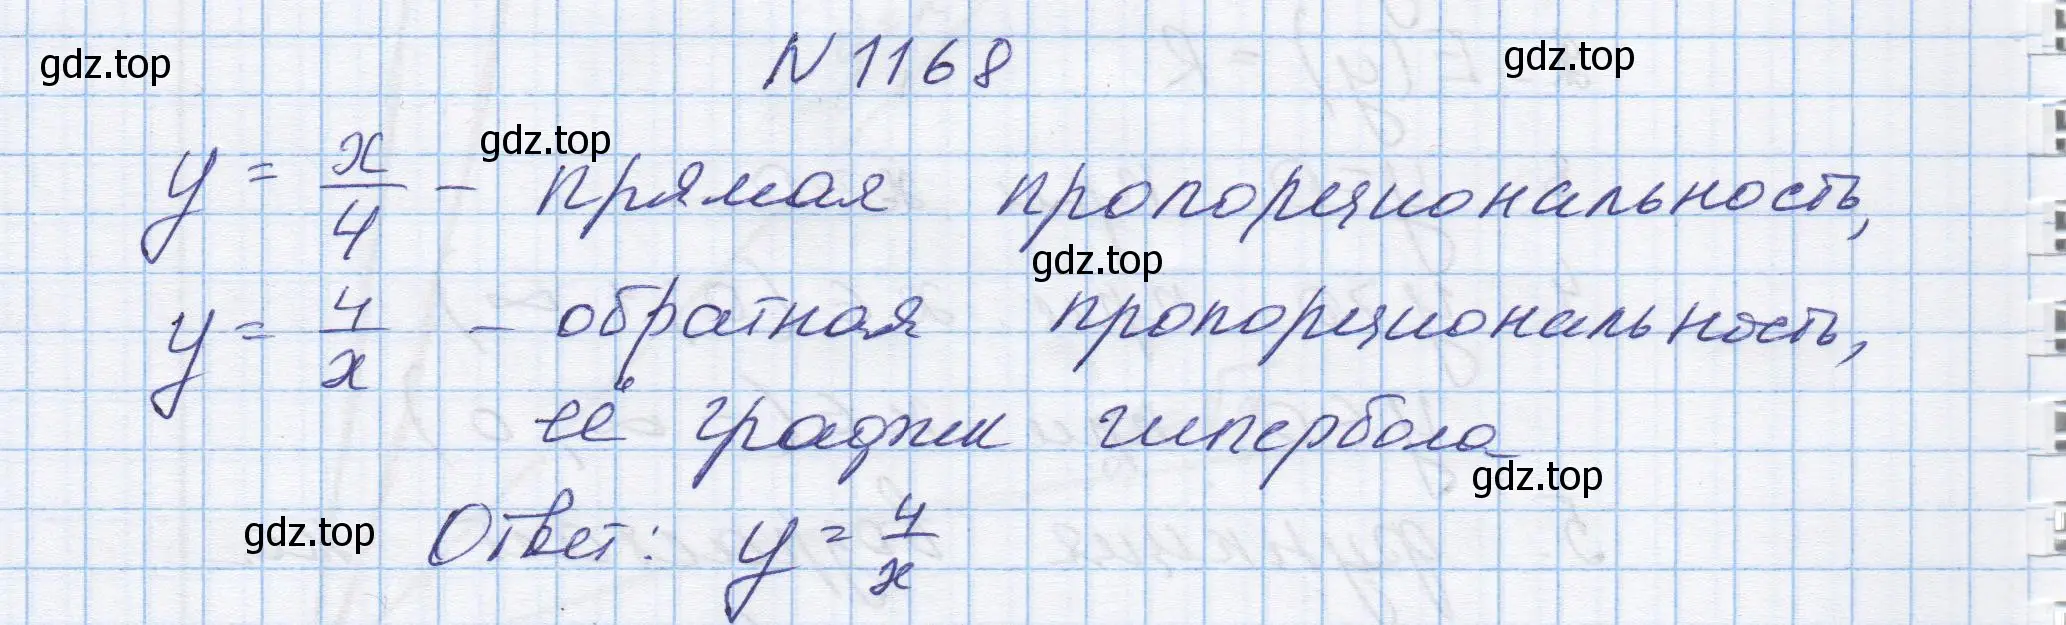 gdz.top
N 1168
gdz.top
gdz.top
y = x/4 - прямая пропорциональность,
gdz.top
y = 4/x - обратная пропорциональность,
её график гипербола
gdz.top
gdz.top
Ответ: y = 4/x